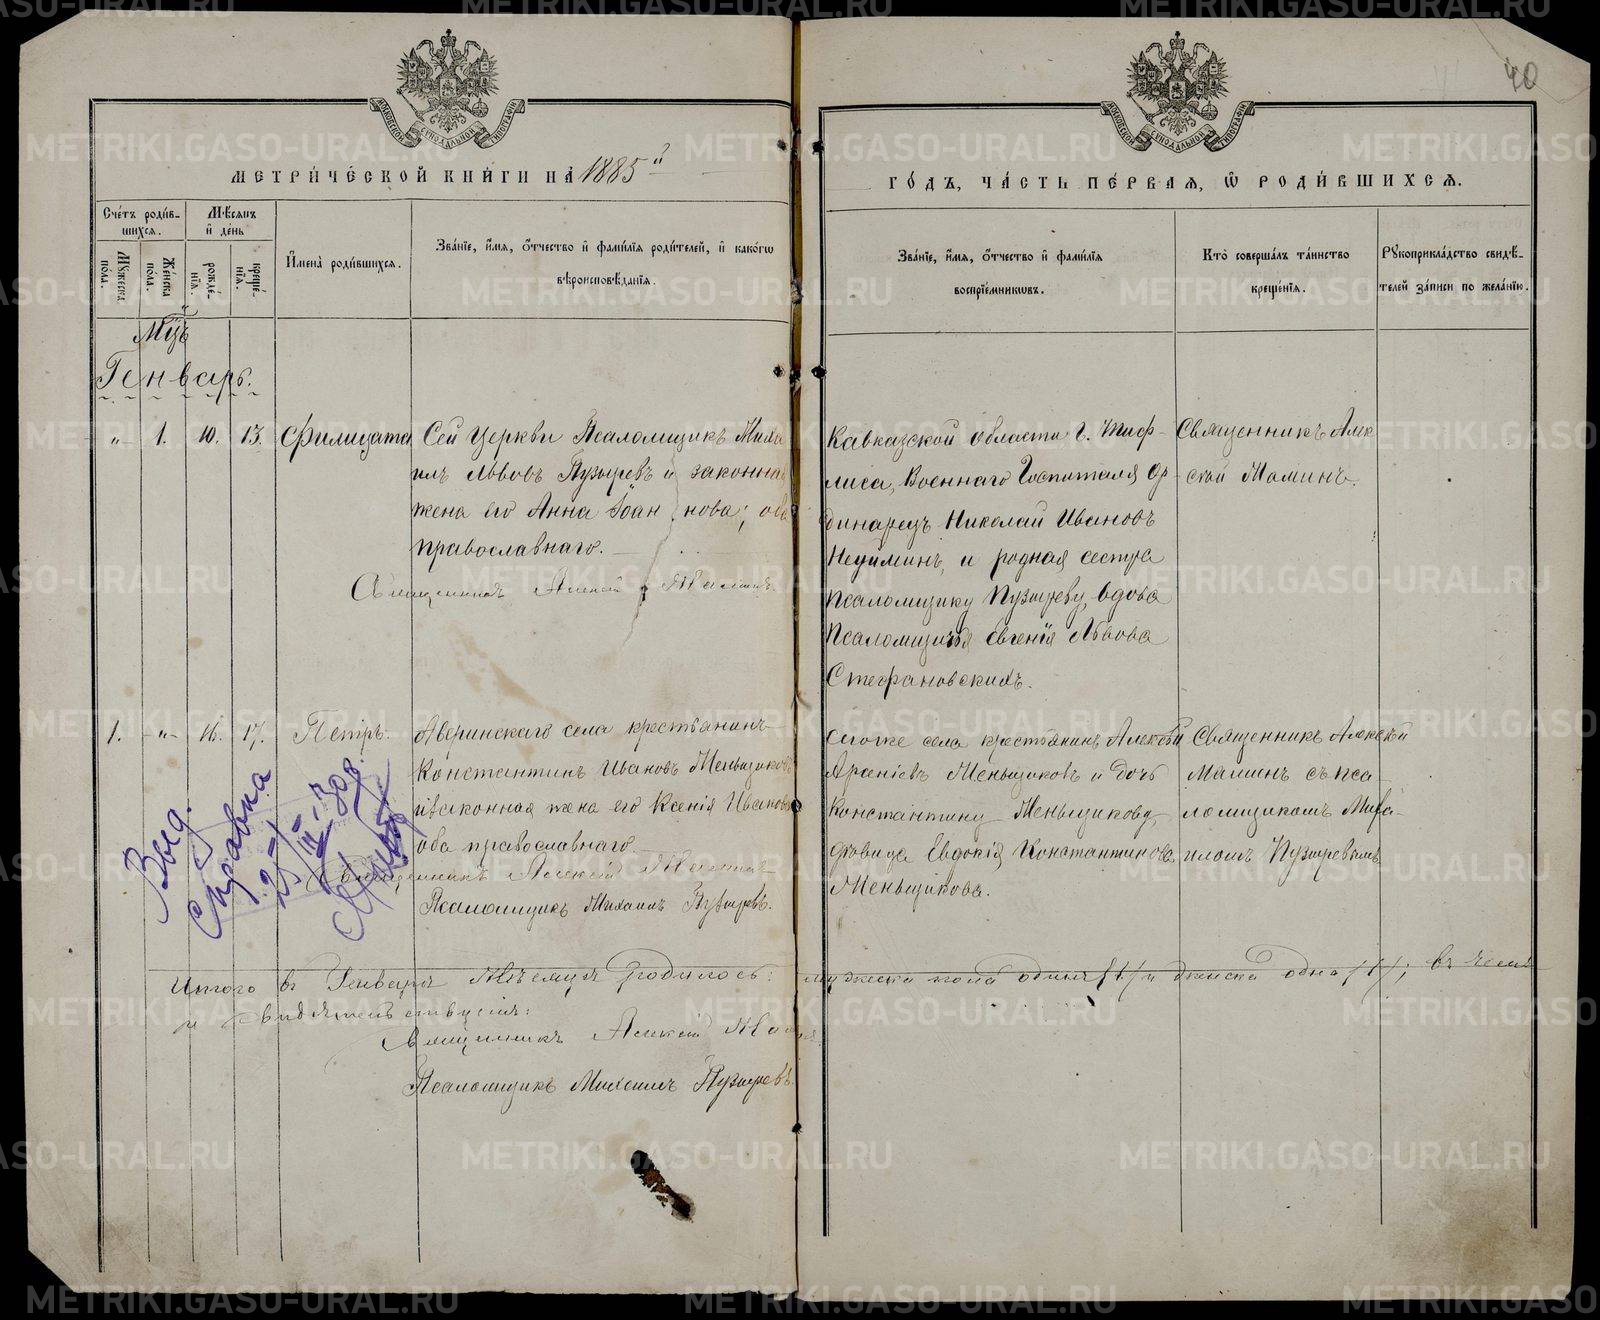 40
МЕТРИ́ЧЕСКОЙ КНИ́ГИ НА̀ 1885й
ГО́ДЪ, ЧА́СТЬ ПЕ́РВАЯ, Ѿ РОДИ́ВШИХСЯ.
Сче́тъ роди́в-
шихся.
Мѣ́сяцъ
и҆ де́нь
Му́жеска
по́ла.
Же́нска
по́ла.
рожде́-
нїя.
креще́-
нїя.
И҆мена̀ роди́вшихся.
Зва́нїе, и҆́мя, ѻ҆́тчество и҆ фами́лїя роди́телей, и҆ како́гѡ
вѣроисповѣ́данїя.
Зва́нїе, и҆́мя, ѻ҆́тчество и҆ фами́лїя
воспрїе́мникѡвъ.
Кто̀ соверша́лъ та́инство
креще́нїя.
Рꙋкоприкла́дство свидѣ́-
телей за́писи по жела́нїю.
Мцъ
Генварь.
„ 1. 10. 13. Филицата
Сей церкви Псаломщикъ Миха
илъ Львовъ Пузыревъ и законная
жена его Анна Іоаннова; оба
православнаго.
Священникъ Алексій Маминъ.
Кавказской области г. Тиф-
лиса, Военнаго Госпиталя Ор-
динарецъ Николай Ивановъ
Неуйминъ, и родная сестра
Псаломщику Пузыреву, вдова
Псаломщичья Евгенія Львова
Стефановскихъ.
Священникъ Алек
сій Маминъ.
1. „ 16. 17. Петръ.
Аверинскаго села крестьянинъ
Константинъ Ивановъ Меньщиковъ
и законная жена его Ксенія Иванова
оба православнаго.
Священникъ Алексій Маминъ
Псаломщикъ Михаилъ Пузыревъ.
Сегоже села крестьянинъ Алексѣй
Меньщиковъ и дочь
Константину Меньщикову,
дѣвица Евдокія Константинова
Меньщикова.
Священникъ Алексѣй
Маминъ съ пса-
ломщикомъ Миха-
иломъ Пузыревымъ
Выд.
справка
Итого въ Генварѣ Мѣсяцѣ родилось: мужеска пола одинъ /1/ и женска одна /1/; въ чемъ
и свидѣтельствуемъ:
Священникъ Алексій Маминъ
Псаломщикъ Михаилъ Пузыревъ.
METRIKI.GASO-URAL.RU